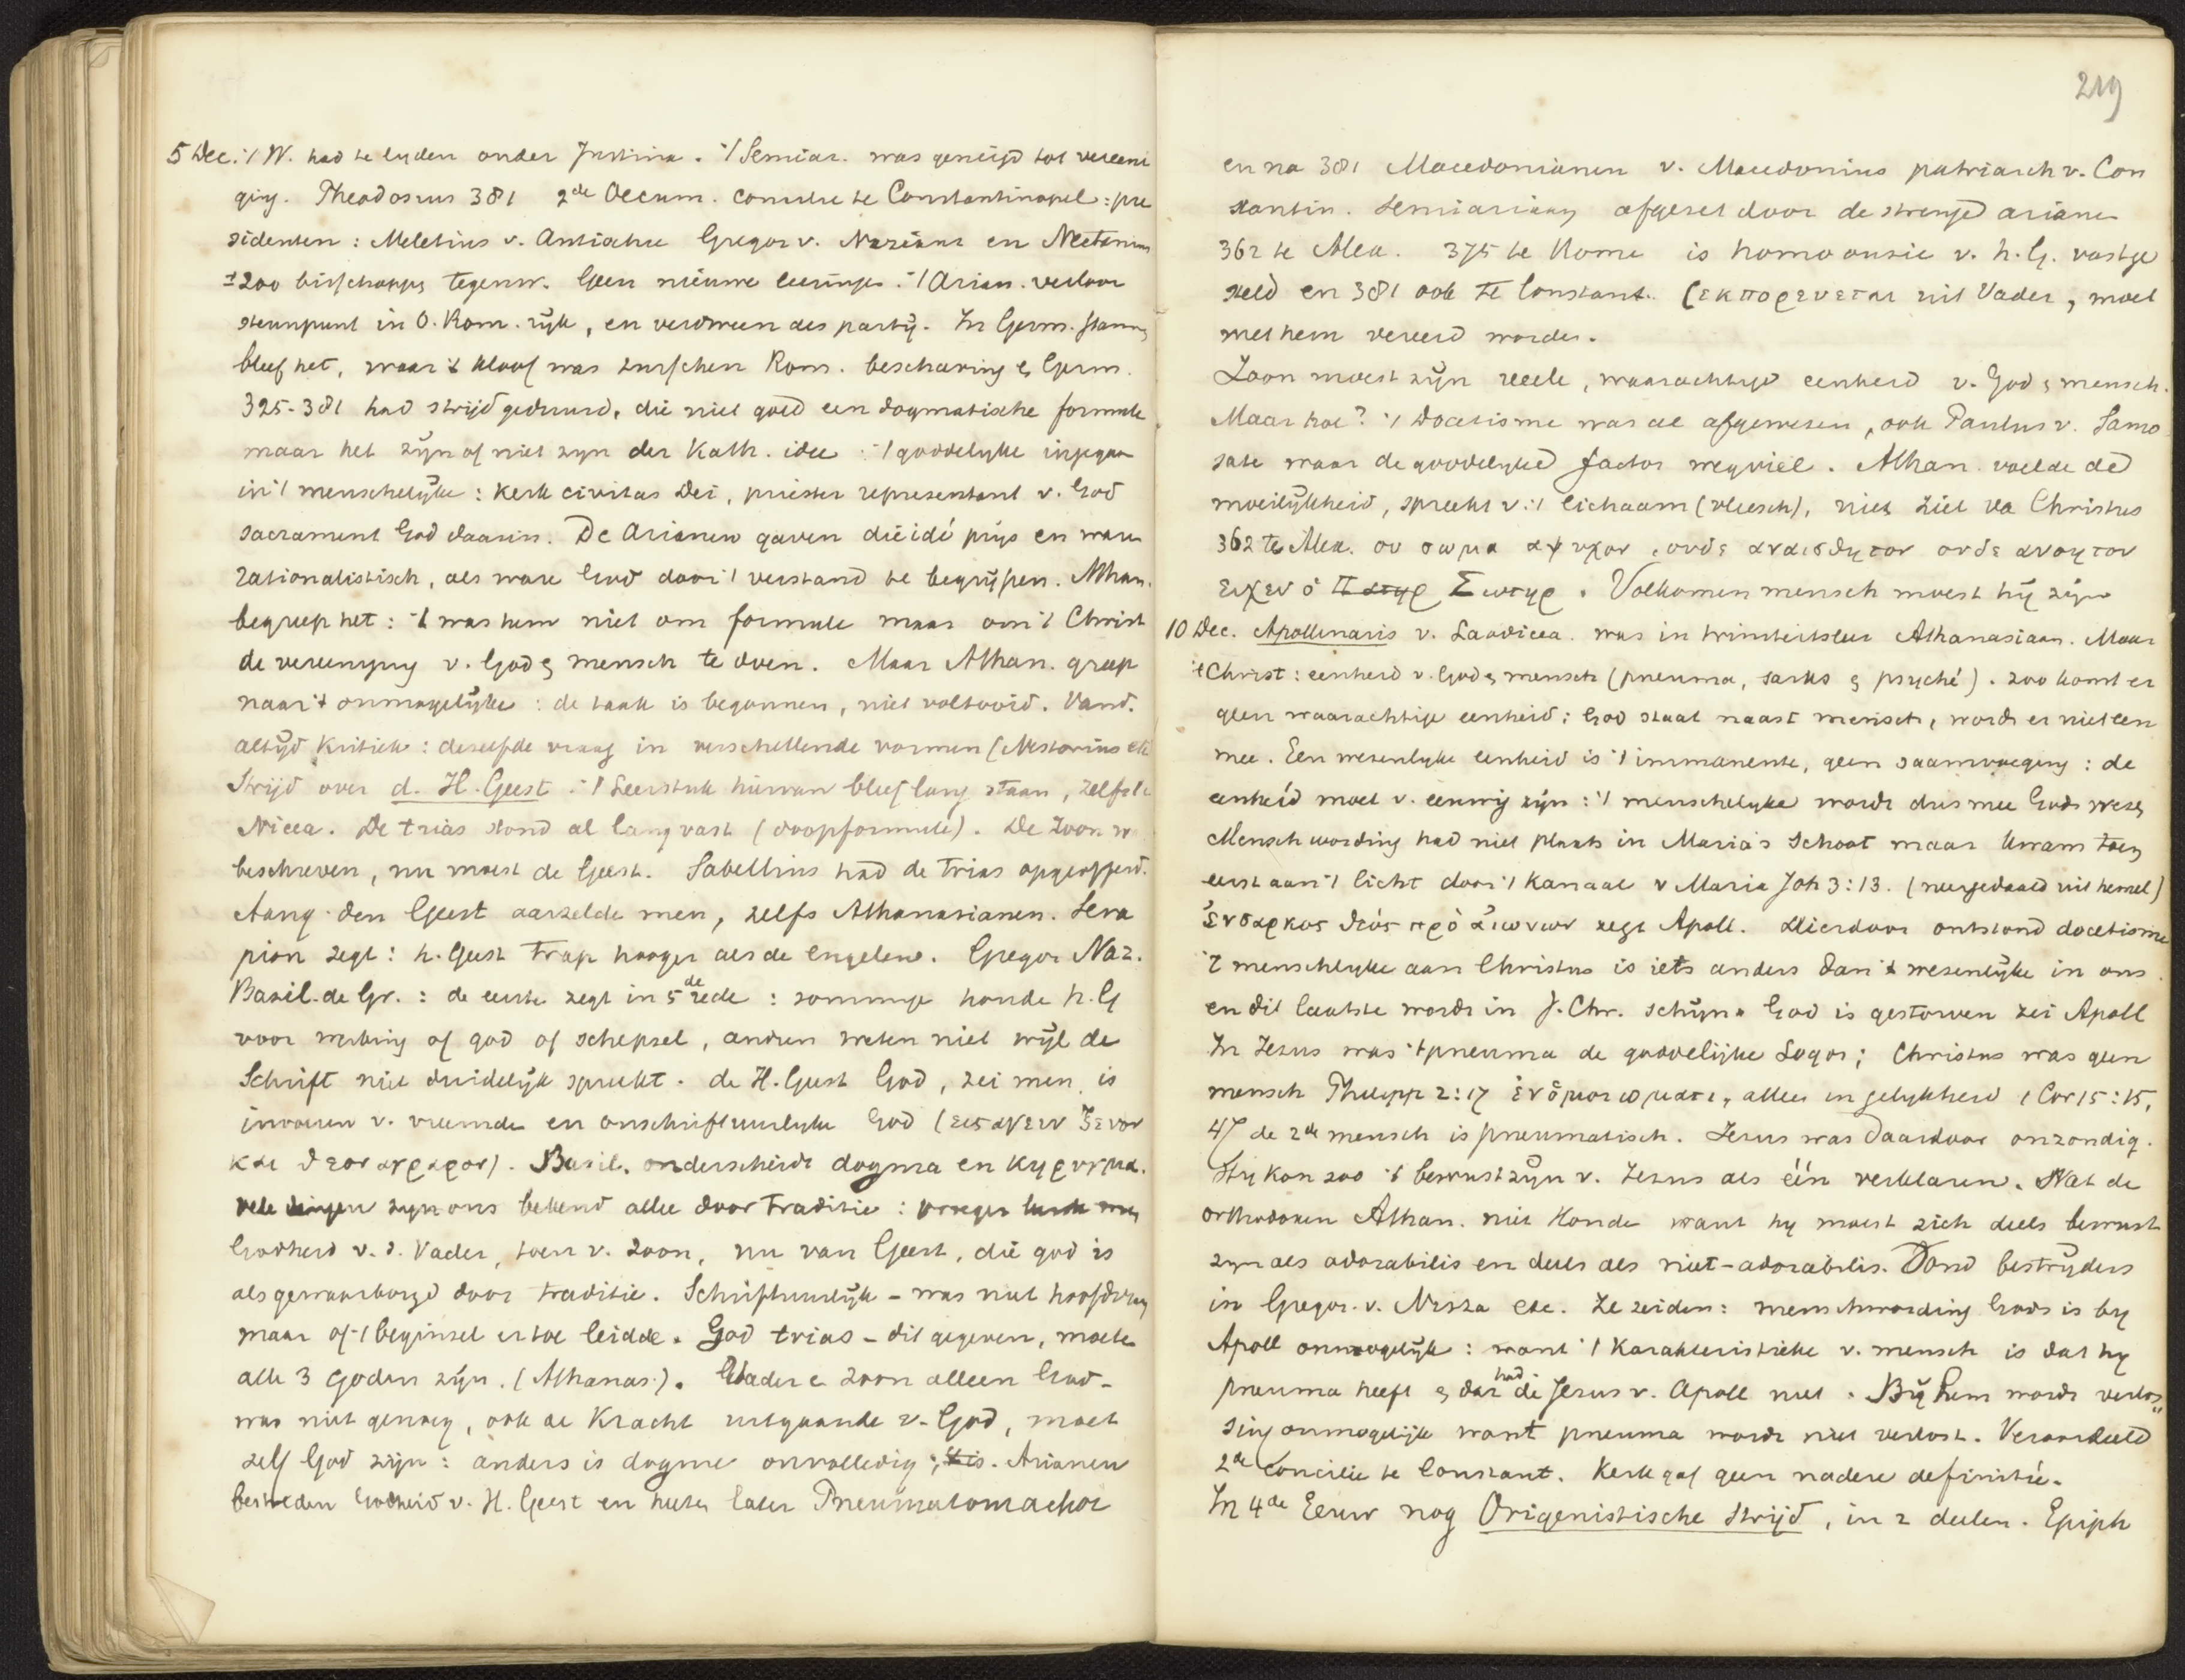 5 Dec. 't W. had te lyden onder Justina. 't Semiar. was geneigd tot vereeni
ging. Theodosius 381 2de Oecum. concilie te Constantinopel: pre
sidenten: Meletius v. Antiochie Gregor v. Nazianz en Nectarius
±200 bisschoppen tegenw. Geen nieuwe leeringe. 't Arian. verloor
steunpunt in O. Rom. rijk, en verdween als partij. In Germ. stamm
bleef het, waar 't kloof was tusschen Rom. beschaving en Germ.
325-381 had strijd geduurd, die niet gold een dogmatische formule
maar het zijn of niet zyn der Kath. idee: 't goddelyke ingegaan
in 't menschelijke: Kerk civitas Dei, priester representant v. God
sacrament God daarin. De Arianen gaven die idé prijs en waren
rationalistisch, als ware God door 't verstand te begrijpen. Athan.
begreep het: 't was hem niet om formule maar om 't Christ
de vereeniging v. God en mensch te doen. Maar Athan. greep
naar 't onmogelijke: de taak is begonnen, niet voltooid. Vand.
altijd kritiek: deselfde vraag in verschillende vormen (Nestorius etc
Strijd over d. H. Geest: 't Leerstuk hiervan bleef lang staan, zelfs te
Nicea. De trias stond al lang vast (doopformule). De Zoon w
beschreven, nu moest de Geest. Sabellius had de trias opgeofferd.
Aang. den Geest aarzelde men, zelfs Athanasianen. Sera
pion zegt: h. Geest trap hooger als de engelen. Gregor Naz.
Basil. de Gr.: de eerste zegt in 5de rede: sommige houde h. G
voor werking of god of schepsel, andren weten niet wijl de
Schrift niet duidelijk spreekt. de H. Geest God, zei men, is
invoeren v. vreemde en onschriftuurlyke God (εισαγειν ξενον
και θεον αγραφον). Basil. onderscheidt dogma en κηρυγμα.
vele dingen zyn ons bekend allee door traditie: vroeger leerde men
Godheid v. d. Vader, toen v. Zoon, nu van Geest, die god is
als gewaarborgd door traditie. Schriftuurlijk - was niet hoofdvraag
maar of 't beginsel er toe leidde. God trias - dit gegeven, moete
alle 3 Goden zijn. (Athanas.). Vader e Zoon alleen God -
was niet genoeg, ook de Kracht uitgaande v. God, moet
zelf God zijn: anders is dogme onvolledig; 't is. Arianen
bestreden Godheid v. H. Geest en heten later Pneumatomachoi
219
en na 381 Macedonianen v. Macedonius patriarch v. Con
stantin. semiariaan afgezet door de strenge arianen
362 te Alex. 375 te Rome is homoousie v. h. G. vastge
steld en 381 ook te Constant. (εκπορευεται uit Vader, moet
met hem vereerd worden.
Zoon moest zijn reeele, waarachtige eenheid v. God en mensch.
Maar hoe? 't Docetisme was al afgewesen, ook Paulus v. Samo
sate waar de goddelijke factor wegviel. Athan. voelde de
moeilijkheid, spreekt v. 't lichaam (vleesch), niet ziel va Christus
362 te Alex. ου σωμα αψυχον, ουδε αναισθητον ουδε ανοητον
ειχεν ὁ Πατηρ Σωτηρ. Volkomen mensch moest hij zijn
10 Dec. Apollinaris v. Laodicea was in triniteitsleer Athanasiaan. Maar
't Christ: eenheid v. God en mensch (pneuma, sarks en psyché). Zoo komt er
geen waarachtige eenheid: God staat naast mensch, wordt er niet een
mee. Een wesenlyke eenheid is 't immanente, geen saamvoeging: de
eenheid moet v. eeuwig zijn: 't menschelyke wordt dus mee Gods wesen
Menschwording had niet plaats in Maria's schoot maar kwam toen
eerst aan 't licht door 't kanaal v Maria Joh 3:13. (neergedaald uit hemel)
ἔνσαρκος θεός πρὸ αἰωνων zegt Apoll. Hierdoor ontstond docetisme
't menschelyke aan Christus is iets anders dan 't wesenlijke in ons
en dit laatste wordt in J. Chr. schijn. God is gestorven zei Apoll
In Jezus was 't pneuma de goddelijke Logos; Christus was geen
mensch Philipp 2:17 ἐν ὁμοιωματι, alleen in gelykheid 1 Cor 15:15,
47 de 2de mensch is pneumatisch. Jezus was daardoor onzondig.
Hij kon zoo 't bewustzijn v. Jezus als één verklaren. Wat de
orthodoxen Athan. niet konde want hy moest zich deels bewust
zyn als adorabilis en deels als niet-adorabilis. Vond bestrijders
in Gregor. v. Nyssa etc. Ze zeiden: menschwording Gods is by
Apoll onmogelijk: want 't karakteristieke v. mensch is dat hy
pneuma heeft en dat had de Jesus v. Apoll niet. Bij hem wordt verlos"
sing onmogelijk want pneuma wordt niet verlost. Veroordeeld
2de Concilie te Constant. Kerk gaf geen nadere definitie.
In 4de Eeuw nog Origenistische strijd, in 2 deelen. Epiph